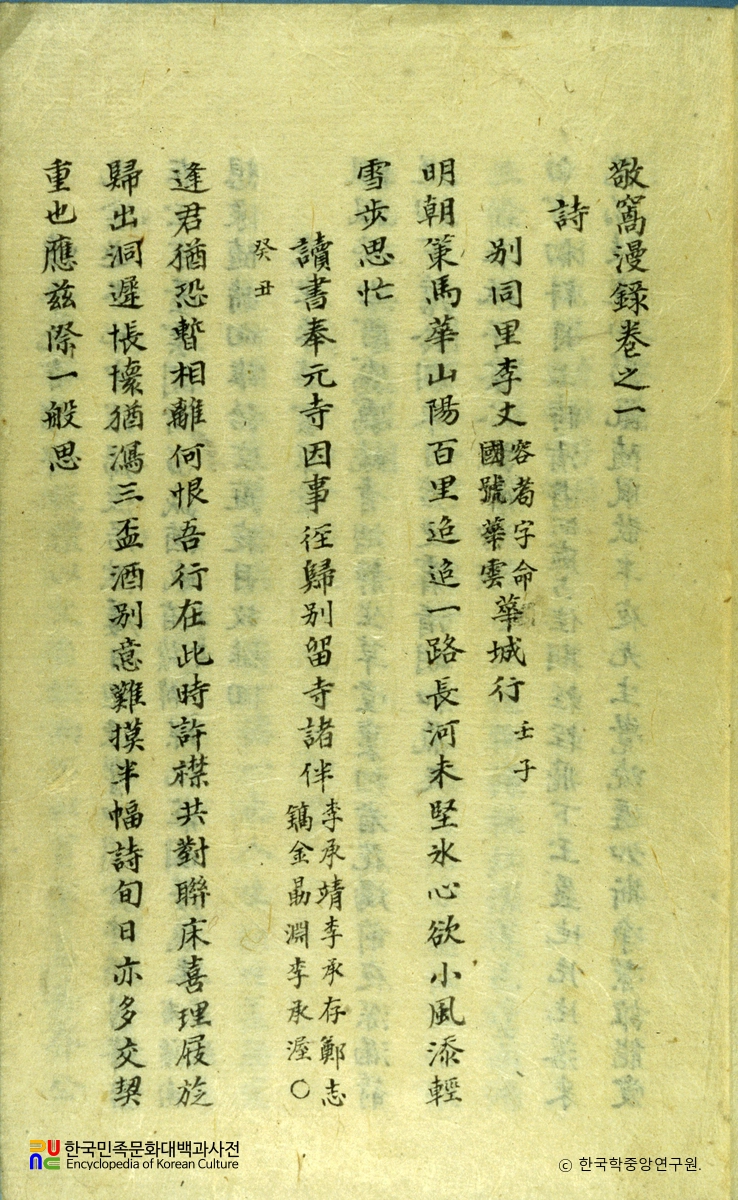 敬窩漫錄卷之一
詩
別同里李丈容耉字命國號華雲華城行壬子
明朝策馬華山陽百里迢迢一路長河未堅氷心欲小風添輕
雪步思忙
讀書奉元寺因事徑歸別留寺諸伴李承靖李承存鄭志鎬金勗淵李承渥○
癸丑
逢君猶恐暫相離何恨吾行在此時許襟共對聯床喜理屐旋
歸出洞遲悵懷猶瀉三盃酒別意難摸半幅詩旬日亦多交契
重也應玆際一般思
한국민족문화대백과사전
Encyclopedia of Korean Culture
© 한국학중앙연구원.